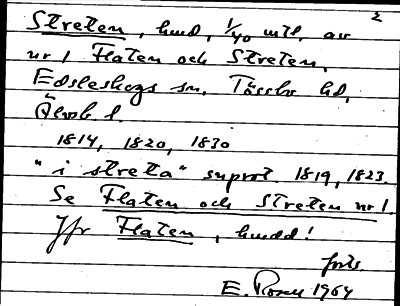 2
Streten, hmd, 1/40 mtl. av
nr 1 Flaten och Streten,
Edsleskogs sn, Tössbo hd,
Älvsb l.
1814, 1820, 1830
"i streta" suprot 1819, 1823.
Se Flaten och Streten nr 1.
Jfr Flaten, hmdd!
forts.
E. Rosen 1964